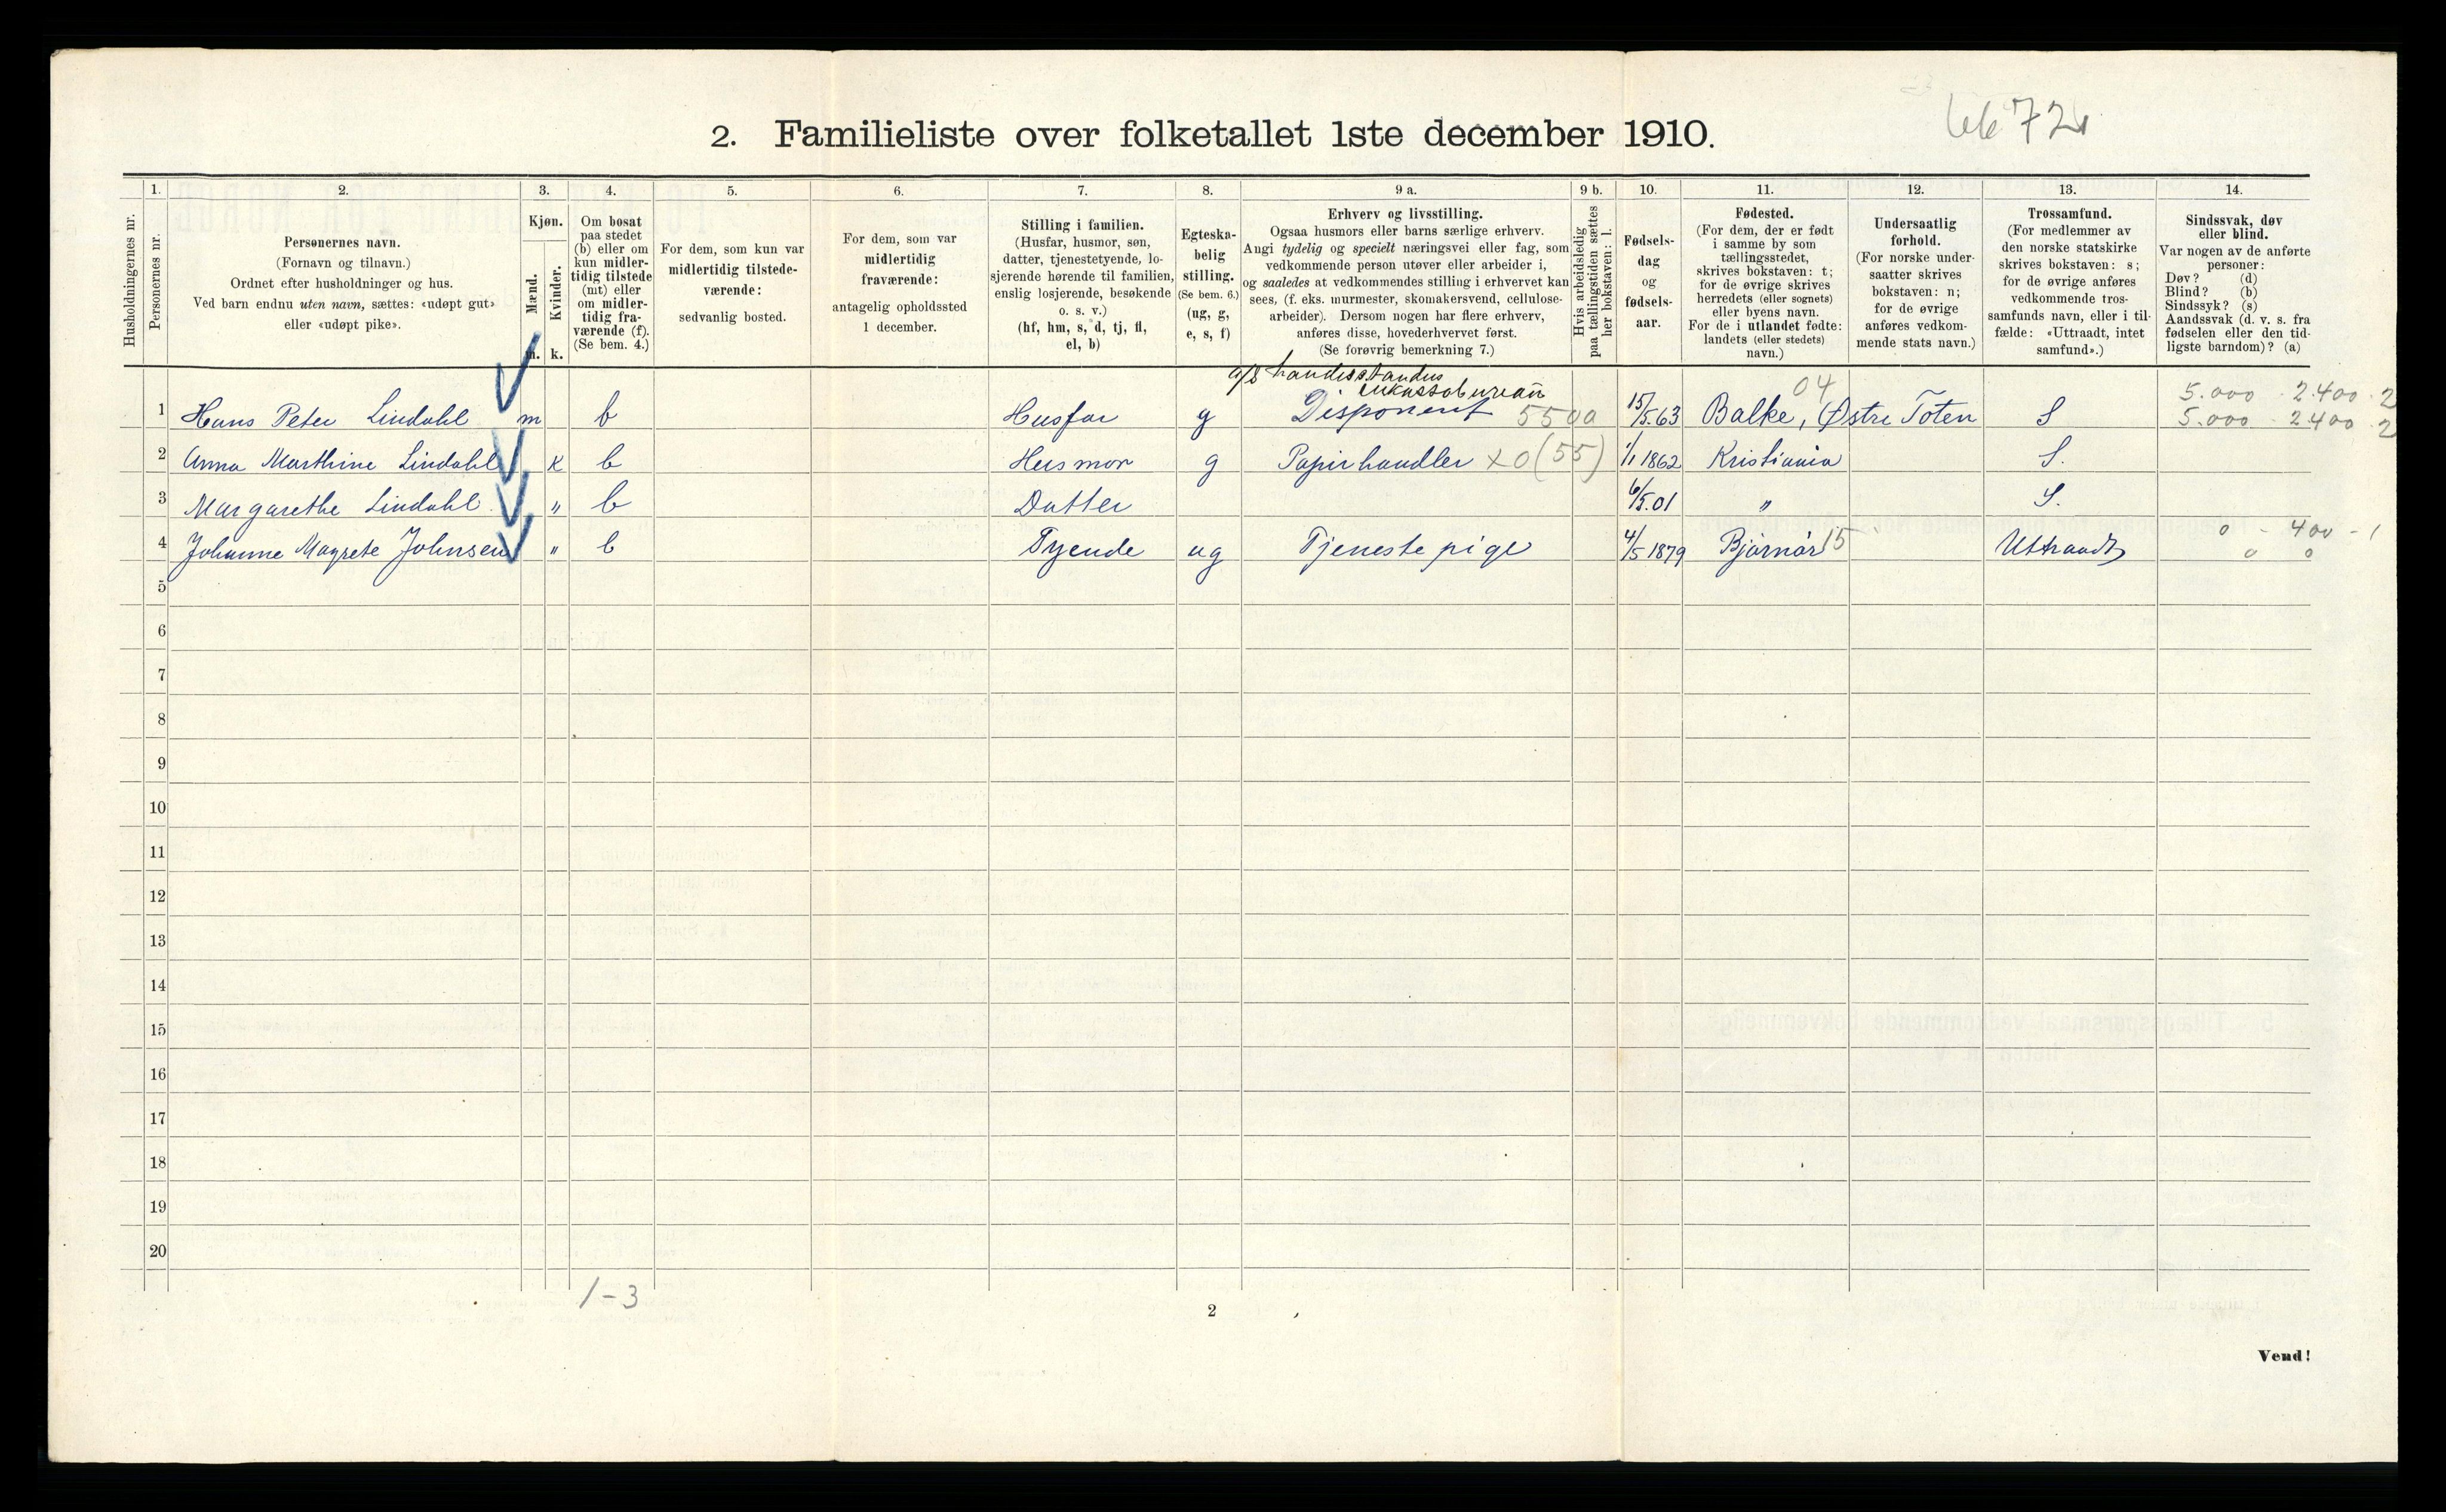 6672
2. Familieliste over folketallet 1ste december 1910.
Husholdningernes nr.
1. Personernes nr.
2. Personernes navn.
(Fornavn og tilnavn.)
Ordnet efter husholdninger og hus.
Ved barn endnu uten navn, sættes: «udøpt gut»
eller «udøpt pike».
3. Kjøn.
Mænd. m.
Kvinder. k.
4. Om bosat
paa stedet
(b) eller om
kun midler-
tidig tilstede
(mt) eller
om midler-
tidig fra-
værende (f).
(Se bem. 4.)
5. For dem, som kun var
midlertidig tilstede-
værende:
sedvanlig bosted.
6. For dem, som var
midlertidig
fraværende:
antagelig opholdssted
1 december.
7. Stilling i familien.
(Husfar, husmor, søn,
datter, tjenestetyende, lo-
sjerende hørende til familien,
enslig losjerende, besøkende
o. s. v.)
(hf, hm, s, d, tj, fl,
el, b)
8. Egteska-
belig
stilling.
(Se bem. 6.)
(ug, g,
e, s, f)
9 a. Erhverv og livsstilling.
Ogsaa husmors eller barns særlige erhverv.
Angi tydelig og specielt næringsvei eller fag, som
vedkommende person utøver eller arbeider i,
og saaledes at vedkommendes stilling i erhvervet kan
sees, (f. eks. murmester, skomakersvend, cellulose-
arbeider). Dersom nogen har flere erhverv,
anføres disse, hovederhvervet først.
(Se forøvrig bemerkning 7.)
9 b. Hvis arbeidsledig
paa tællingstiden sættes
her bokstaven: l.
10. Fødsels-
dag
og
fødsels-
aar.
11. Fødested.
(For dem, der er født
i samme by som
tællingsstedet,
skrives bokstaven: t;
for de øvrige skrives
herredets (eller sognets)
eller byens navn.
For de i utlandet fødte:
landets (eller stedets)
navn.)
12. Undersaatlig
forhold.
(For norske under-
saatter skrives
bokstaven: n;
for de øvrige
anføres vedkom-
mende stats navn.)
13. Trossamfund.
(For medlemmer av
den norske statskirke
skrives bokstaven: s;
for de øvrige anføres
vedkommende tros-
samfunds navn, eller i til-
fælde: «Uttraadt, intet
samfund».)
14. Sindssvak, døv
eller blind.
Var nogen av de anførte
personer:
Døv? (d)
Blind? (b)
Sindssyk? (s)
Aandssvak (d. v. s. fra
fødselen eller den tid-
ligste barndom)? (a)
a/s handelsstandens
Inkassobureau 04 5.000 2.400 2
1 Hans Peter Lindahl m b Husfar g Disponent 5500 15/5.63 Balke, Østre Toten S 5.000 2.400 2
2 Anna Marthine Lindahl k b Husmor g Papirhandler x0(55) 1/1 1862 Kristiania S.
3 Margarethe Lindahl " b Datter 6/5.01 " S.
4 Johanne Magrete Johnsen " b Tyende ug Tjenestepige 4/5 1879 Bjørnør 15 Uttraadt 0 - 400 - 1
0 0
5
6
7
8
9
10
11
12
13
14
15
16
17
18
19
20
1-3
2
Vend!